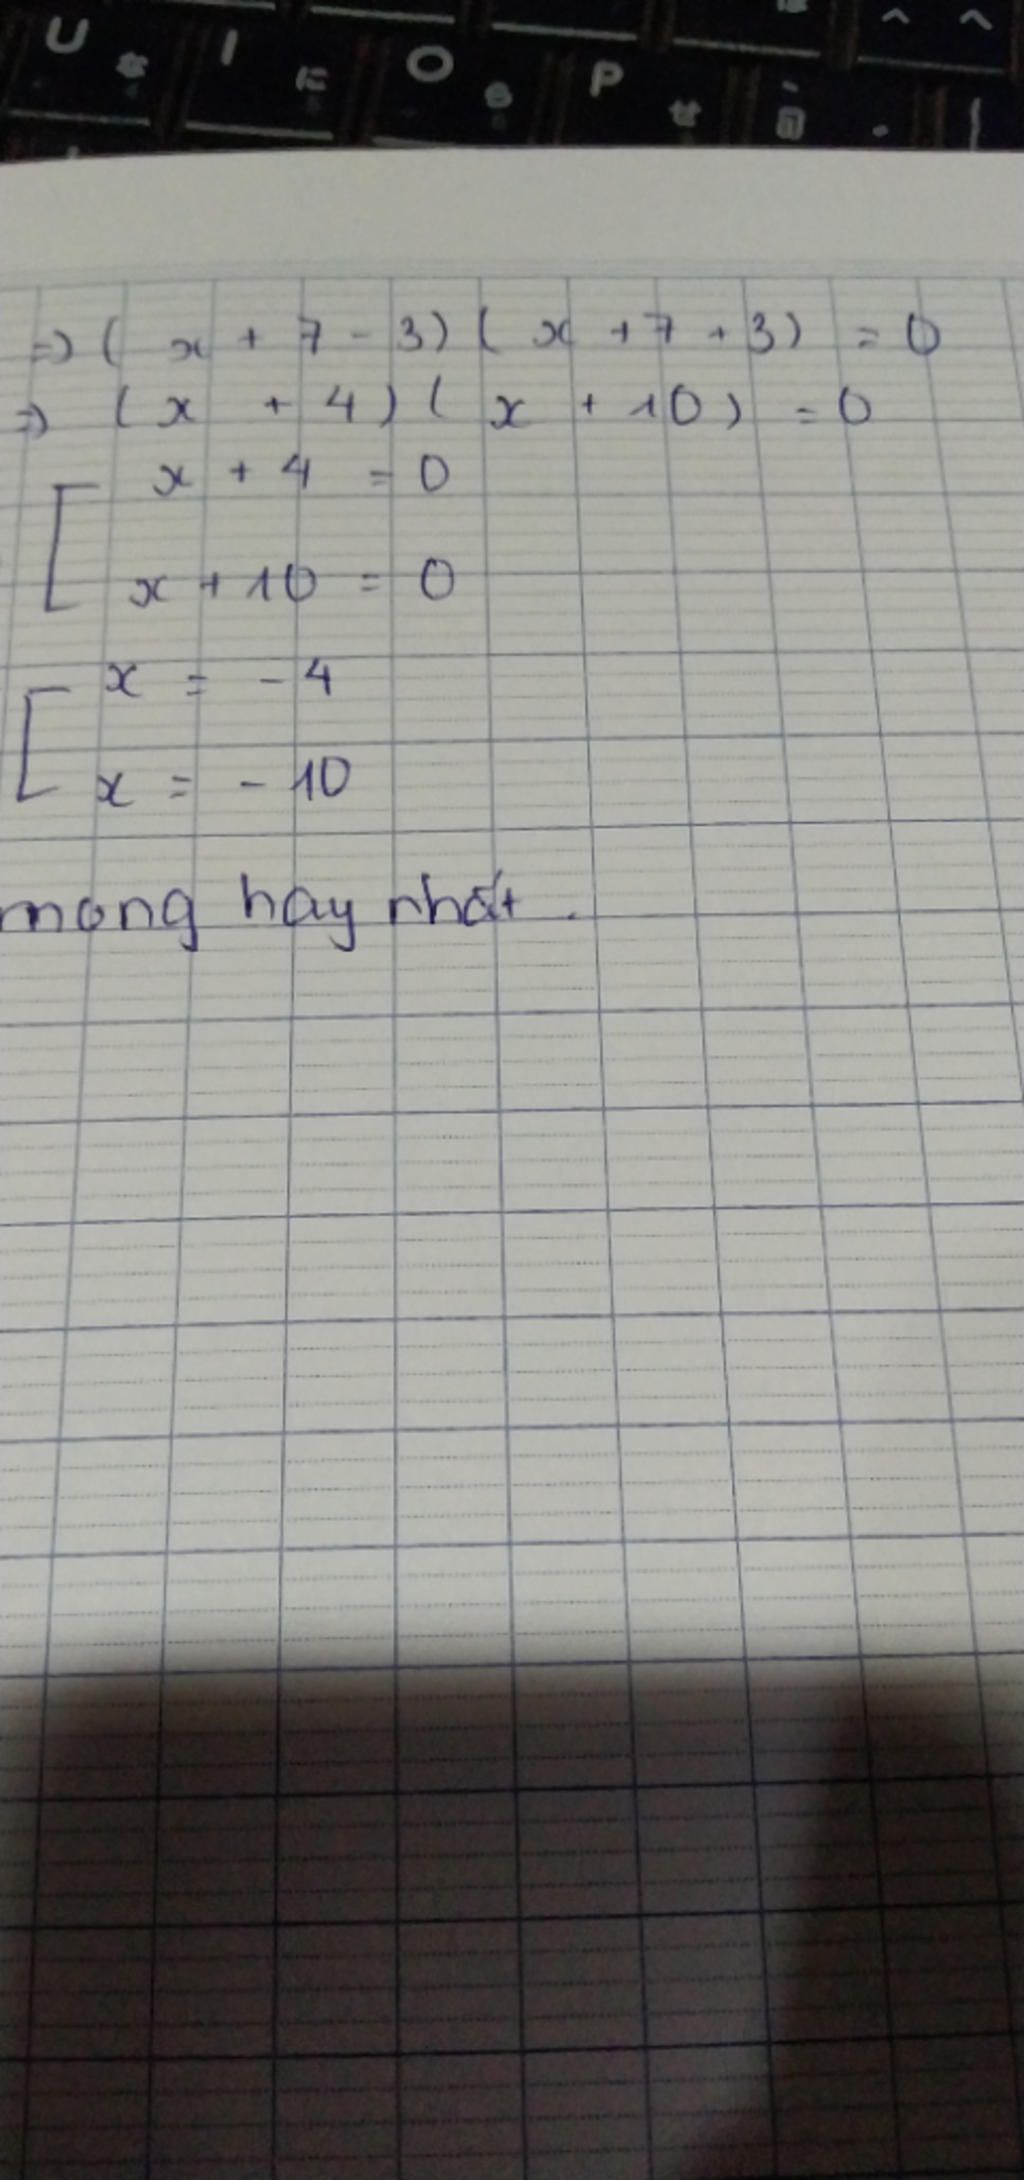 U な I に O ら P せ
⇒ ( x + 7 - 3) ( x + 7 + 3) = 0
⇒ ( x + 4 ) ( x + 10 ) = 0
x + 4 = 0
x + 10 = 0
x = - 4
x = - 10
mong hay nhất .